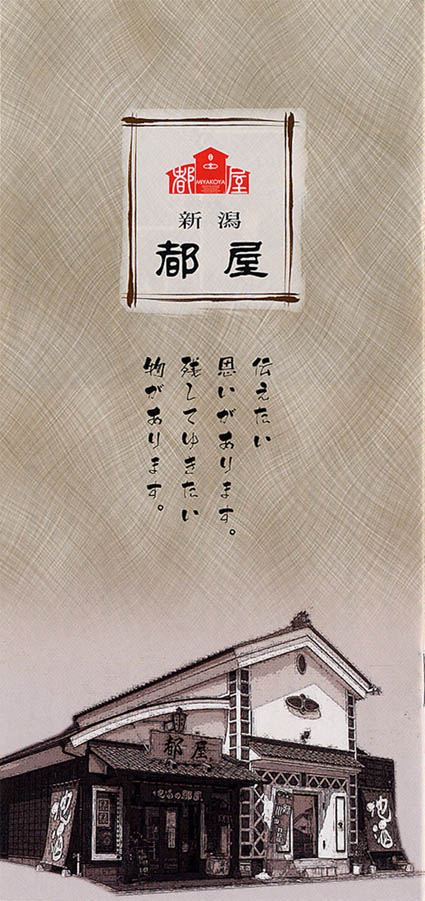 都屋
MIYAKOYA
新潟
都屋
伝えたい
思いがあります。
残してゆきたい
物があります。
都屋
地酒
地酒